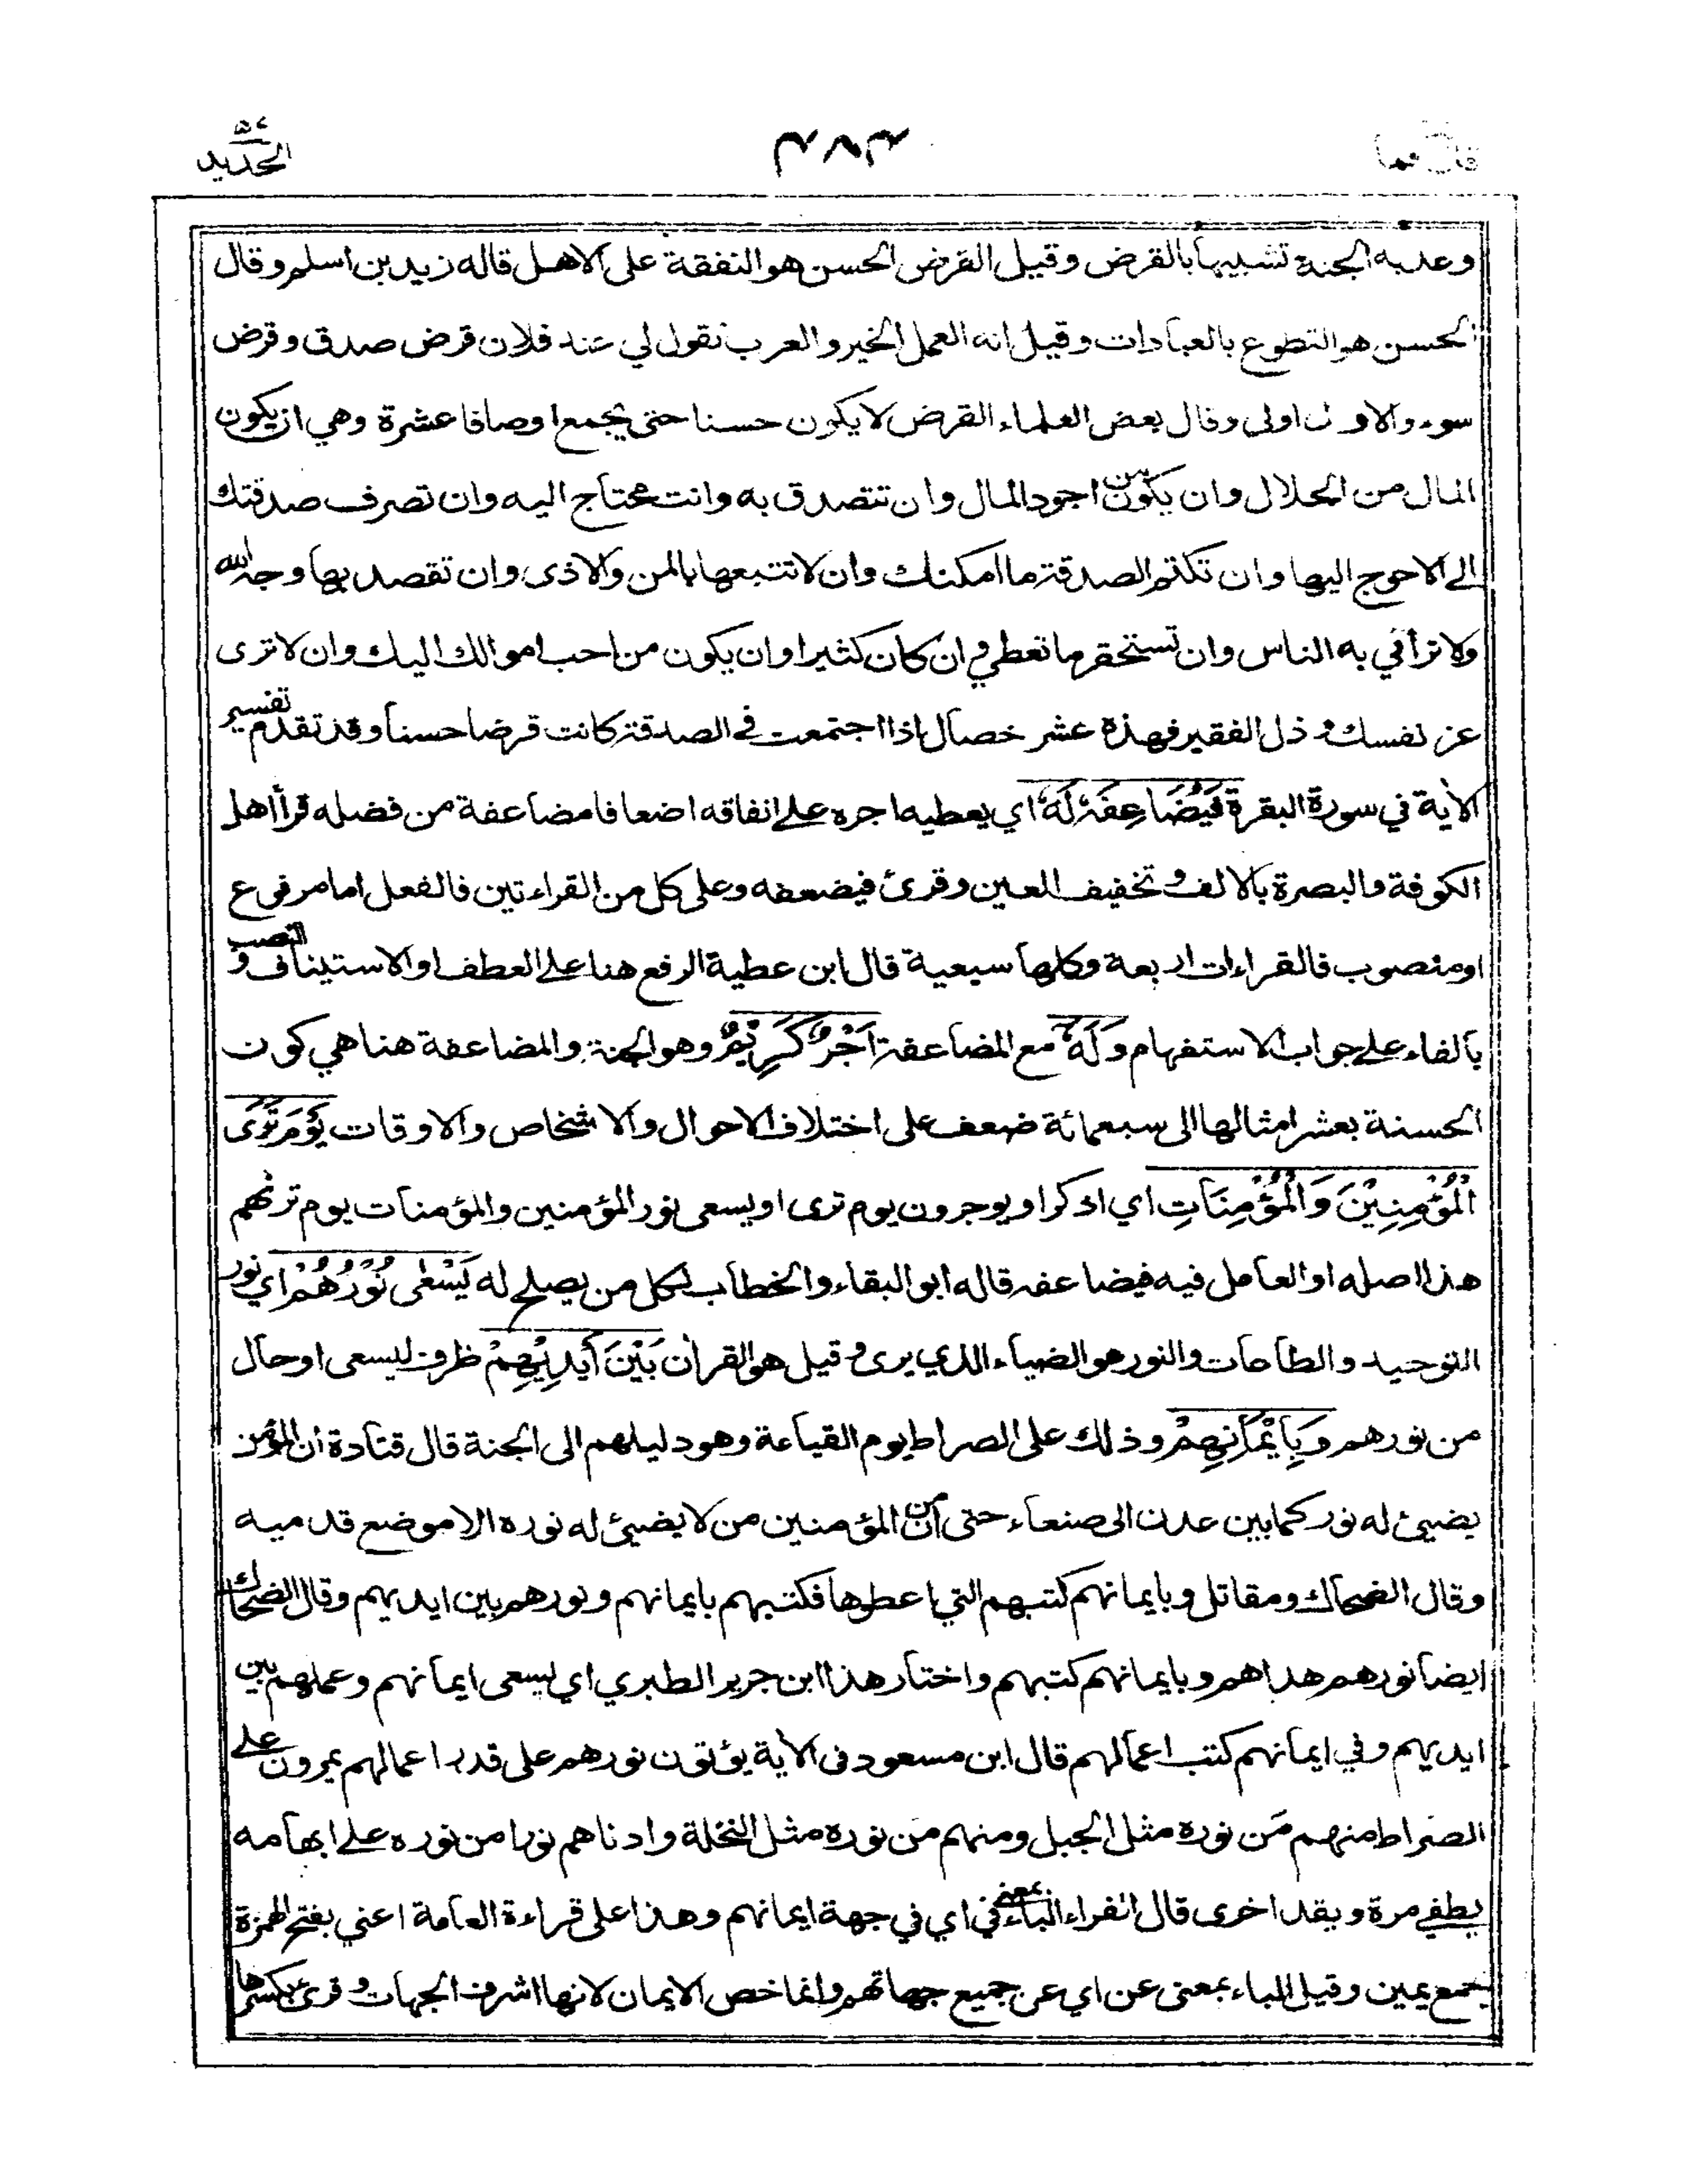 قال فما
٤٧٤
٥٧
الحديد
وعد به الجنة تشبيها بالقرض وقيل القرض الحسن هو النفقة على الاهل قاله زيد بن اسلم وقال
الحسن هو التطوع بالعبادات وقيل انه العمل الخير والعرب تقول لي عند فلان قرض صدق وقرض
سوء والاول اولى وقال بعض العلماء القرض لا يكون حسنا حتى يجمع اوصافا عشرة وهي ان يكون
المال من الحلال وان يكون من اجود المال وان تتصدق به وانت محتاج اليه وان تصرف صدقتك
الى الاحوج اليها وان تكتم الصدقة ما امكنك وان لا تتبعها بالمن والاذى وان تقصد بها وجه الله
ولا ترائي به الناس وان تستحقر ما تعطي وان كان كثيرا وان يكون من احب اموالك اليك وان لا ترى
عز نفسك وذل الفقير فهذه عشر خصال اذا اجتمعت في الصدقة كانت قرضا حسنا وقد تقدم تفسير
الأية في سورة البقرة فَيُضَاعِفَهُ لَهُ اي يعطيه اجره على انفاقه اضعافا مضاعفة من فضله قرأ اهل
الكوفة والبصرة بالالف وتخفيف العين وقرئ فيضعفه وعلى كل من القراءتين فالفعل اما مرفوع
او منصوب فالقراءات اربعة وكلها سبعية قال ابن عطية الرفع هنا على العطف او الاستيناف والنصب
بالفاء على جواب الاستفهام وَلَهُ مع المضاعفة اَجْرٌ كَرِيْمٌ وهو الجنة والمضاعفة هنا هي كون
الحسنة بعشر امثالها الى سبعمائة ضعف على اختلاف الاحوال والاشخاص والاوقات يَوْمَ تَرَى
الْمُؤْمِنِيْنَ وَالْمُؤْمِنَاتِ اي اذكر او يوجرون يوم ترى او يسعى نور المؤمنين والمؤمنات يوم ترٰهم
هذا اصله او العامل فيه فيضاعفه قاله ابو البقاء والخطاب لكل من يصلح له يَسْعٰى نُوْرُهُمْ اي نور
التوحيد والطاعات والنور هو الضياء الذي يرى وقيل هو القرأن بَيْنَ اَيْدِيْهِمْ ظرف ليسعى او حال
من نورهم وَبِاَيْمَانِهِمْ وذلك على الصراط يوم القيامة وهو دليلهم الى الجنة قال قتادة ان المؤمن
يضيئ له نور كما بين عدن الى صنعاء حتى ان من المؤمنين من لا يضيئ له نوره الا موضع قدميه
وقال الضحاك ومقاتل وبايمانهم كتبهم التي اعطوها فكتبهم بايمانهم ونورهم بين ايديهم وقال الضحاك
ايضا نورهم هداهم وبايمانهم كتبهم واختار هذا ابن جرير الطبري اي يسعى ايمانهم وعملهم بين
ايديهم وفي ايمانهم كتب اعمالهم قال ابن مسعود في الأية يؤتون نورهم على قدر اعمالهم يمرون على
الصراط منهم من نوره مثل الجبل ومنهم من نوره مثل النخلة وادناهم نورا من نوره على ابهامه
يطفي مرة ويقد اخرى قال الفراء الباء بمعنى في اي في جهة ايمانهم وهذا على قراءة العامة اعني بفتح الهمزة
جمع يمين وقيل الباء بمعنى عن اي عن جميع جهاتهم وانما خص الايمان لانها اشرف الجهات وقرئ بكسرها